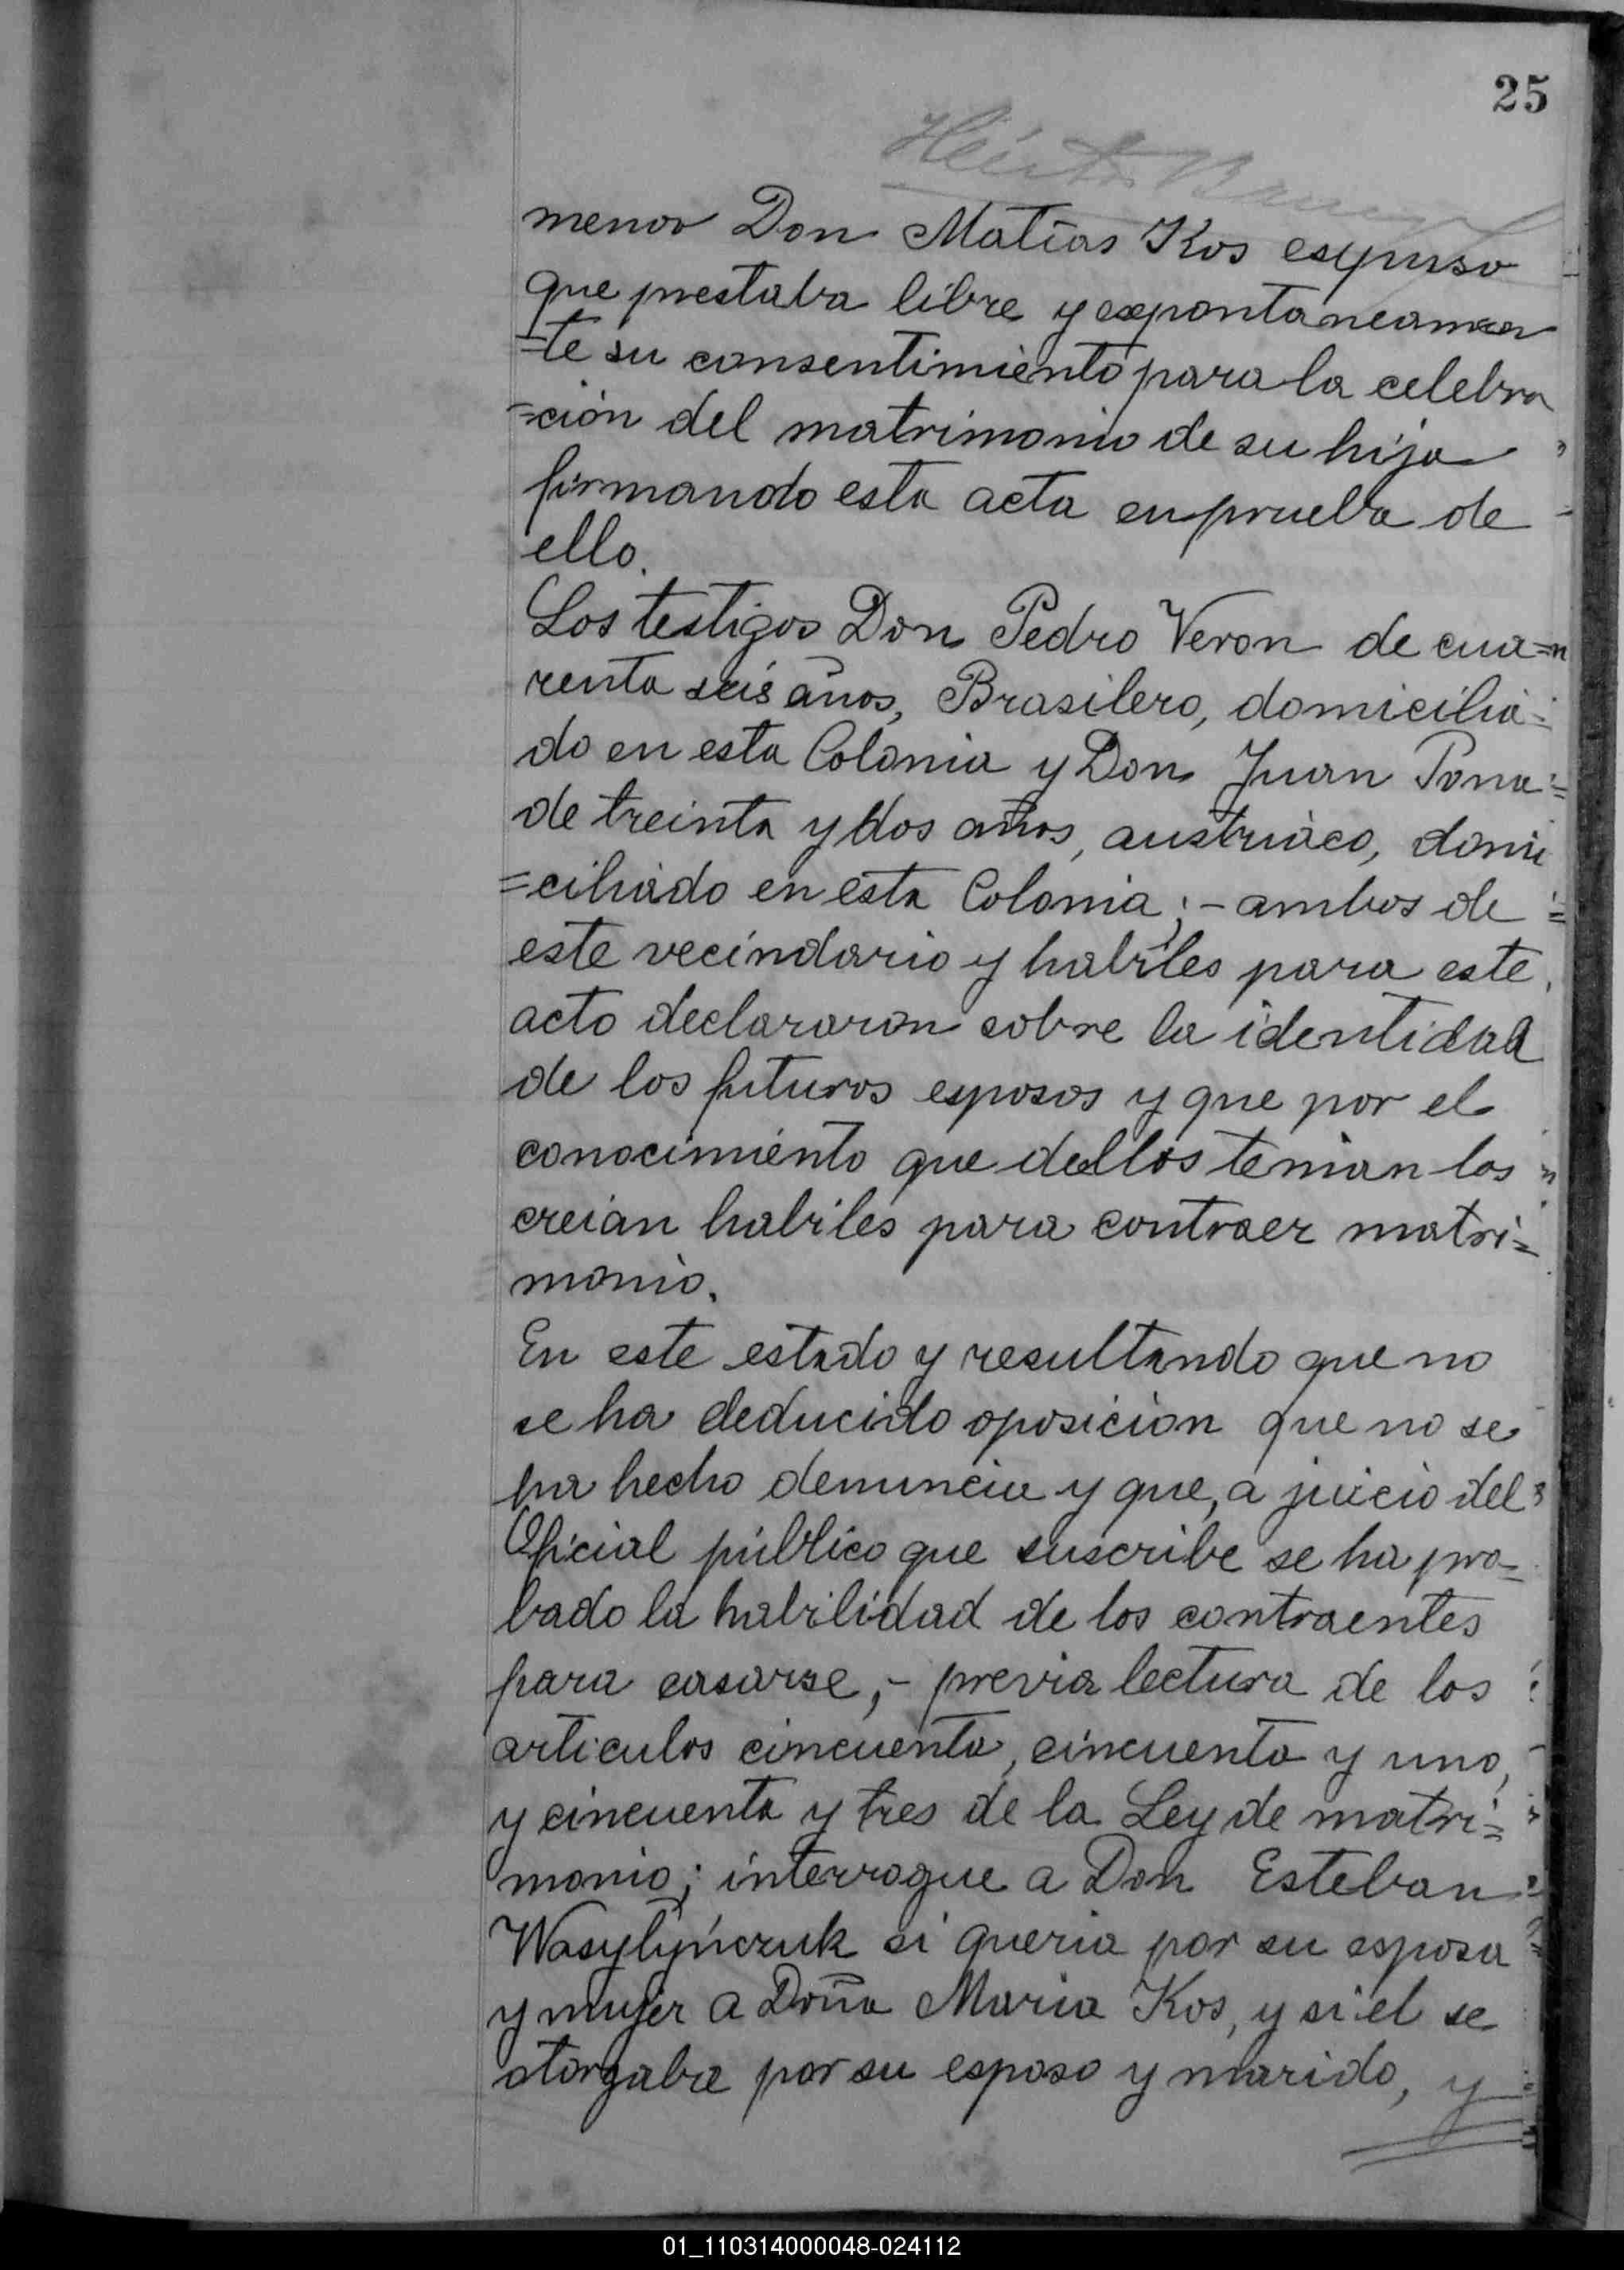 25
menor Don Matías Kos espuso
que prestaba libre y expontaneamen
=te su consentimiento para la celebra
=ción del matrimonio de su hija
firmando esta acta en prueba de
ello.
Los testigos Don Pedro Veron de cua=
renta seis años, Brasilero, domicilia=
do en esta Colonia y Don Juan
de treinta y dos años, austriaco, domi
=ciliado en esta Colonia; - ambos de
este vecindario y habiles para este
acto declararon sobre la identidad
de los futuros esposos y que por el
conocimiento que dellos tenian los
creian habiles para contraer matri=
monio.
En este estado y resultando que no
se ha deducido oposicion que no se
ha hecho denuncia y que, a juicio del
Oficial público que suscribe se ha pro=
bado la habilidad de los contraentes
para casarse, - previa lectura de los
articulos cincuenta, cincuenta y uno,
y cincuenta y tres de la Ley de matri=
monio; interrogue a Don Esteban
Wasylyńczuk si queria por su esposa
y mujer a Doña Maria Kos, y si el se
otorgaba por su esposo y marido, y
01_110314000048-024112